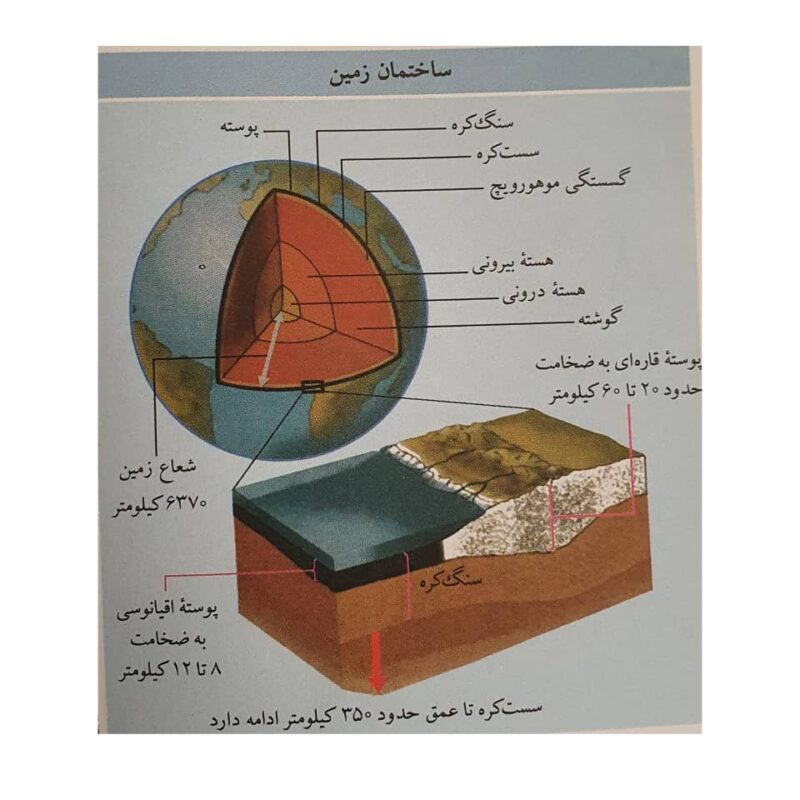 ساختمان زمین
سنگ‌کره
پوسته
سست‌کره
گسستگی موهورویچ
هستهٔ بیرونی
هستهٔ درونی
گوشته
پوستهٔ قاره‌ای به ضخامت
حدود ۲۰ تا ۶۰ کیلومتر
شعاع زمین
۶۳۷۰ کیلومتر
سنگ‌کره
پوستهٔ اقیانوسی
به ضخامت
۸ تا ۱۲ کیلومتر
سست‌کره تا عمق حدود ۳۵۰ کیلومتر ادامه دارد